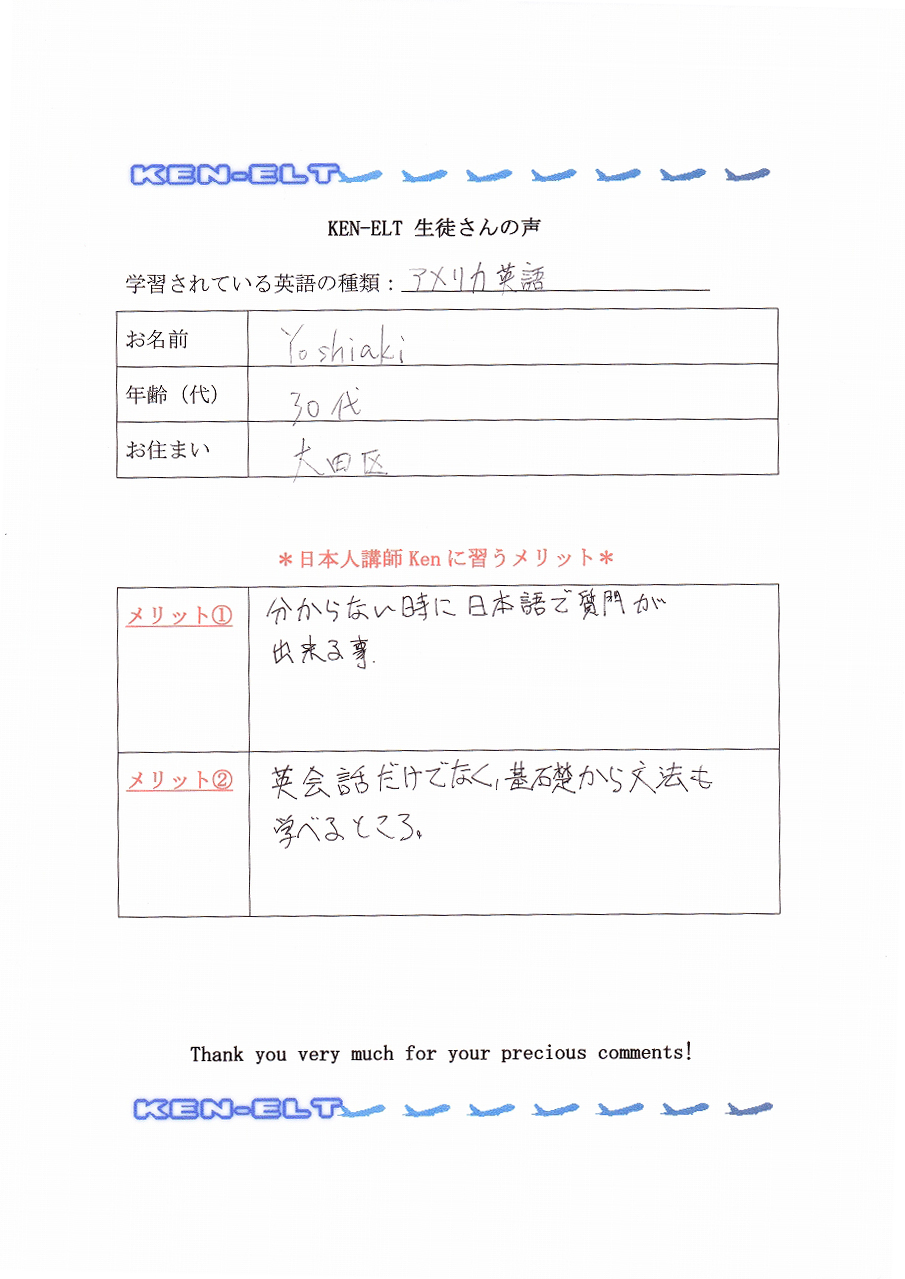 KEN-ELT
KEN-ELT 生徒さんの声
学習されている英語の種類：アメリカ英語
お名前 Yoshiaki
年齢（代） 30代
お住まい 大田区
＊日本人講師Kenに習うメリット＊
メリット① 分からない時に日本語で質問が
出来る事.
メリット② 英会話だけでなく,基礎から文法も
学べるところ。
Thank you very much for your precious comments!
KEN-ELT